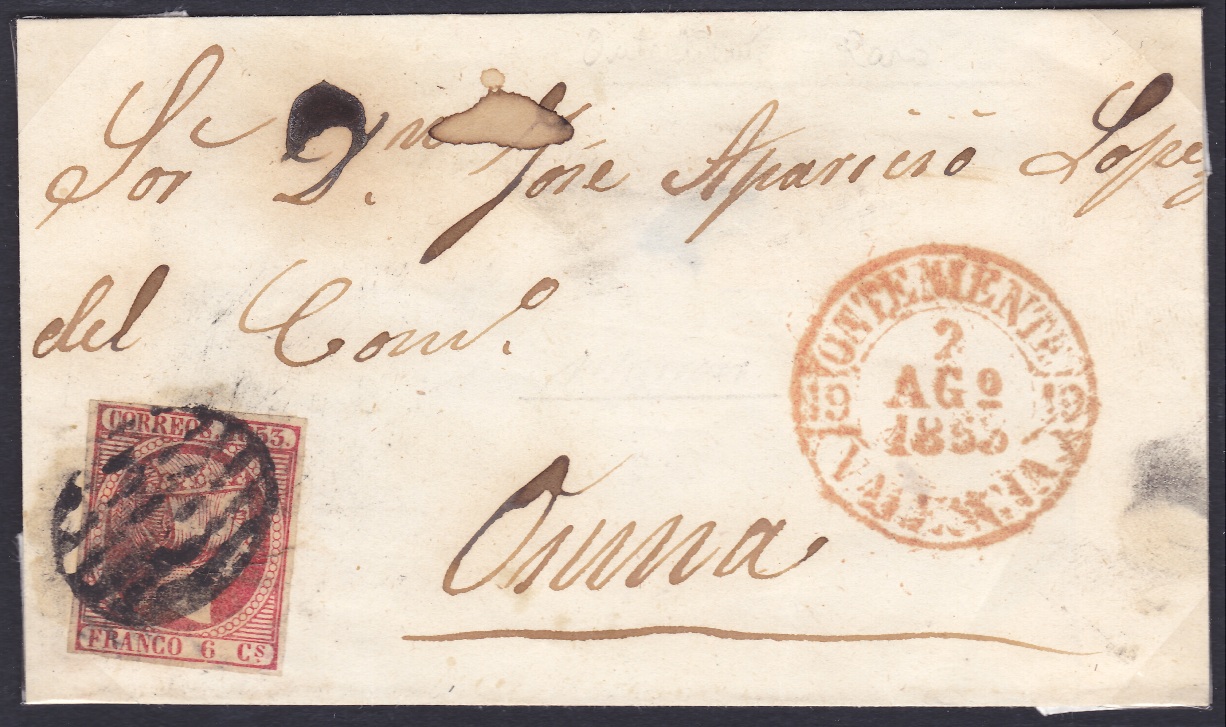 Sor D. José Aparicio Lopez
del Com.º
Osuna
ONTENIENTE
2
AGº
1853
VALENCIA
CORREOS. 53.
FRANCO 6 Cs